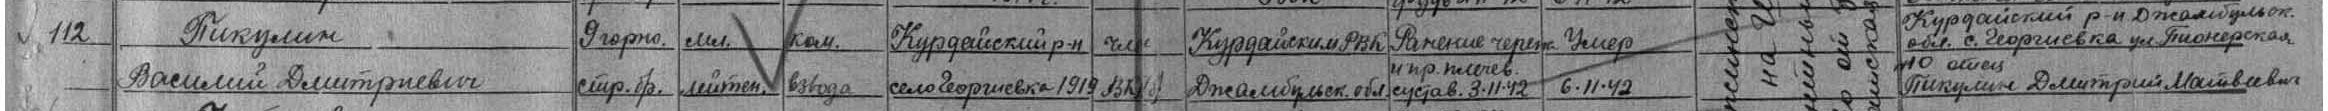 112 Пикулин 9 горно. мл. ком. Курдайский р-н член Курдайским РВК Ранение черепа Умер Курдайский р-н Джамбульск.
обл. с. Георгиевка ул. Пионерская
и пр. плечев. №10 отец
Василий Дмитриевич стр. бр. лейтен. взвода село Георгиевка 1919 ВКП(б) Джамбульск. обл. сустав. 3-11-42 6-11-42 Пикулин Дмитрий Матвеевич
на